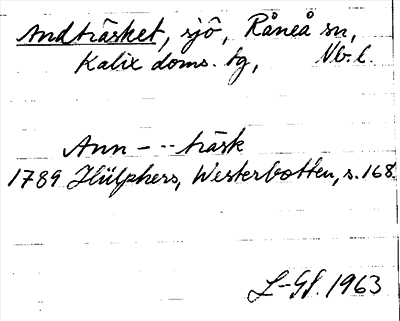 Andträsket, sjö, Råneå sn,
Kalix doms. tg, Nb. l.
Ann - - - träsk
1789 Hülphers, Westerbotten, s. 168.
L-GS. 1963